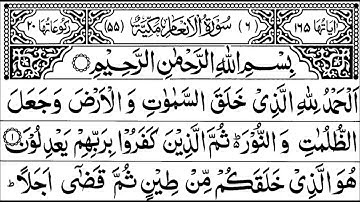 اٰیَاتُهَا ۱۶۵ (۶) سُوْرَةُ الْاَنْعَامِ مَكِّیَّةٌ (۵۵) رُكُوْعَاتُهَا ۲۰
بِسْمِ اللهِ الرَّحْمٰنِ الرَّحِیْمِ
اَلْحَمْدُ لِلّٰهِ الَّذِیْ خَلَقَ السَّمٰوٰتِ وَ الْاَرْضَ وَ جَعَلَ
الظُّلُمٰتِ وَ النُّوْرَ ؕ ثُمَّ الَّذِیْنَ كَفَرُوْا بِرَبِّهِمْ یَعْدِلُوْنَ ۱
هُوَ الَّذِیْ خَلَقَكُمْ مِّنْ طِیْنٍ ثُمَّ قَضٰۤی اَجَلًا ؕ